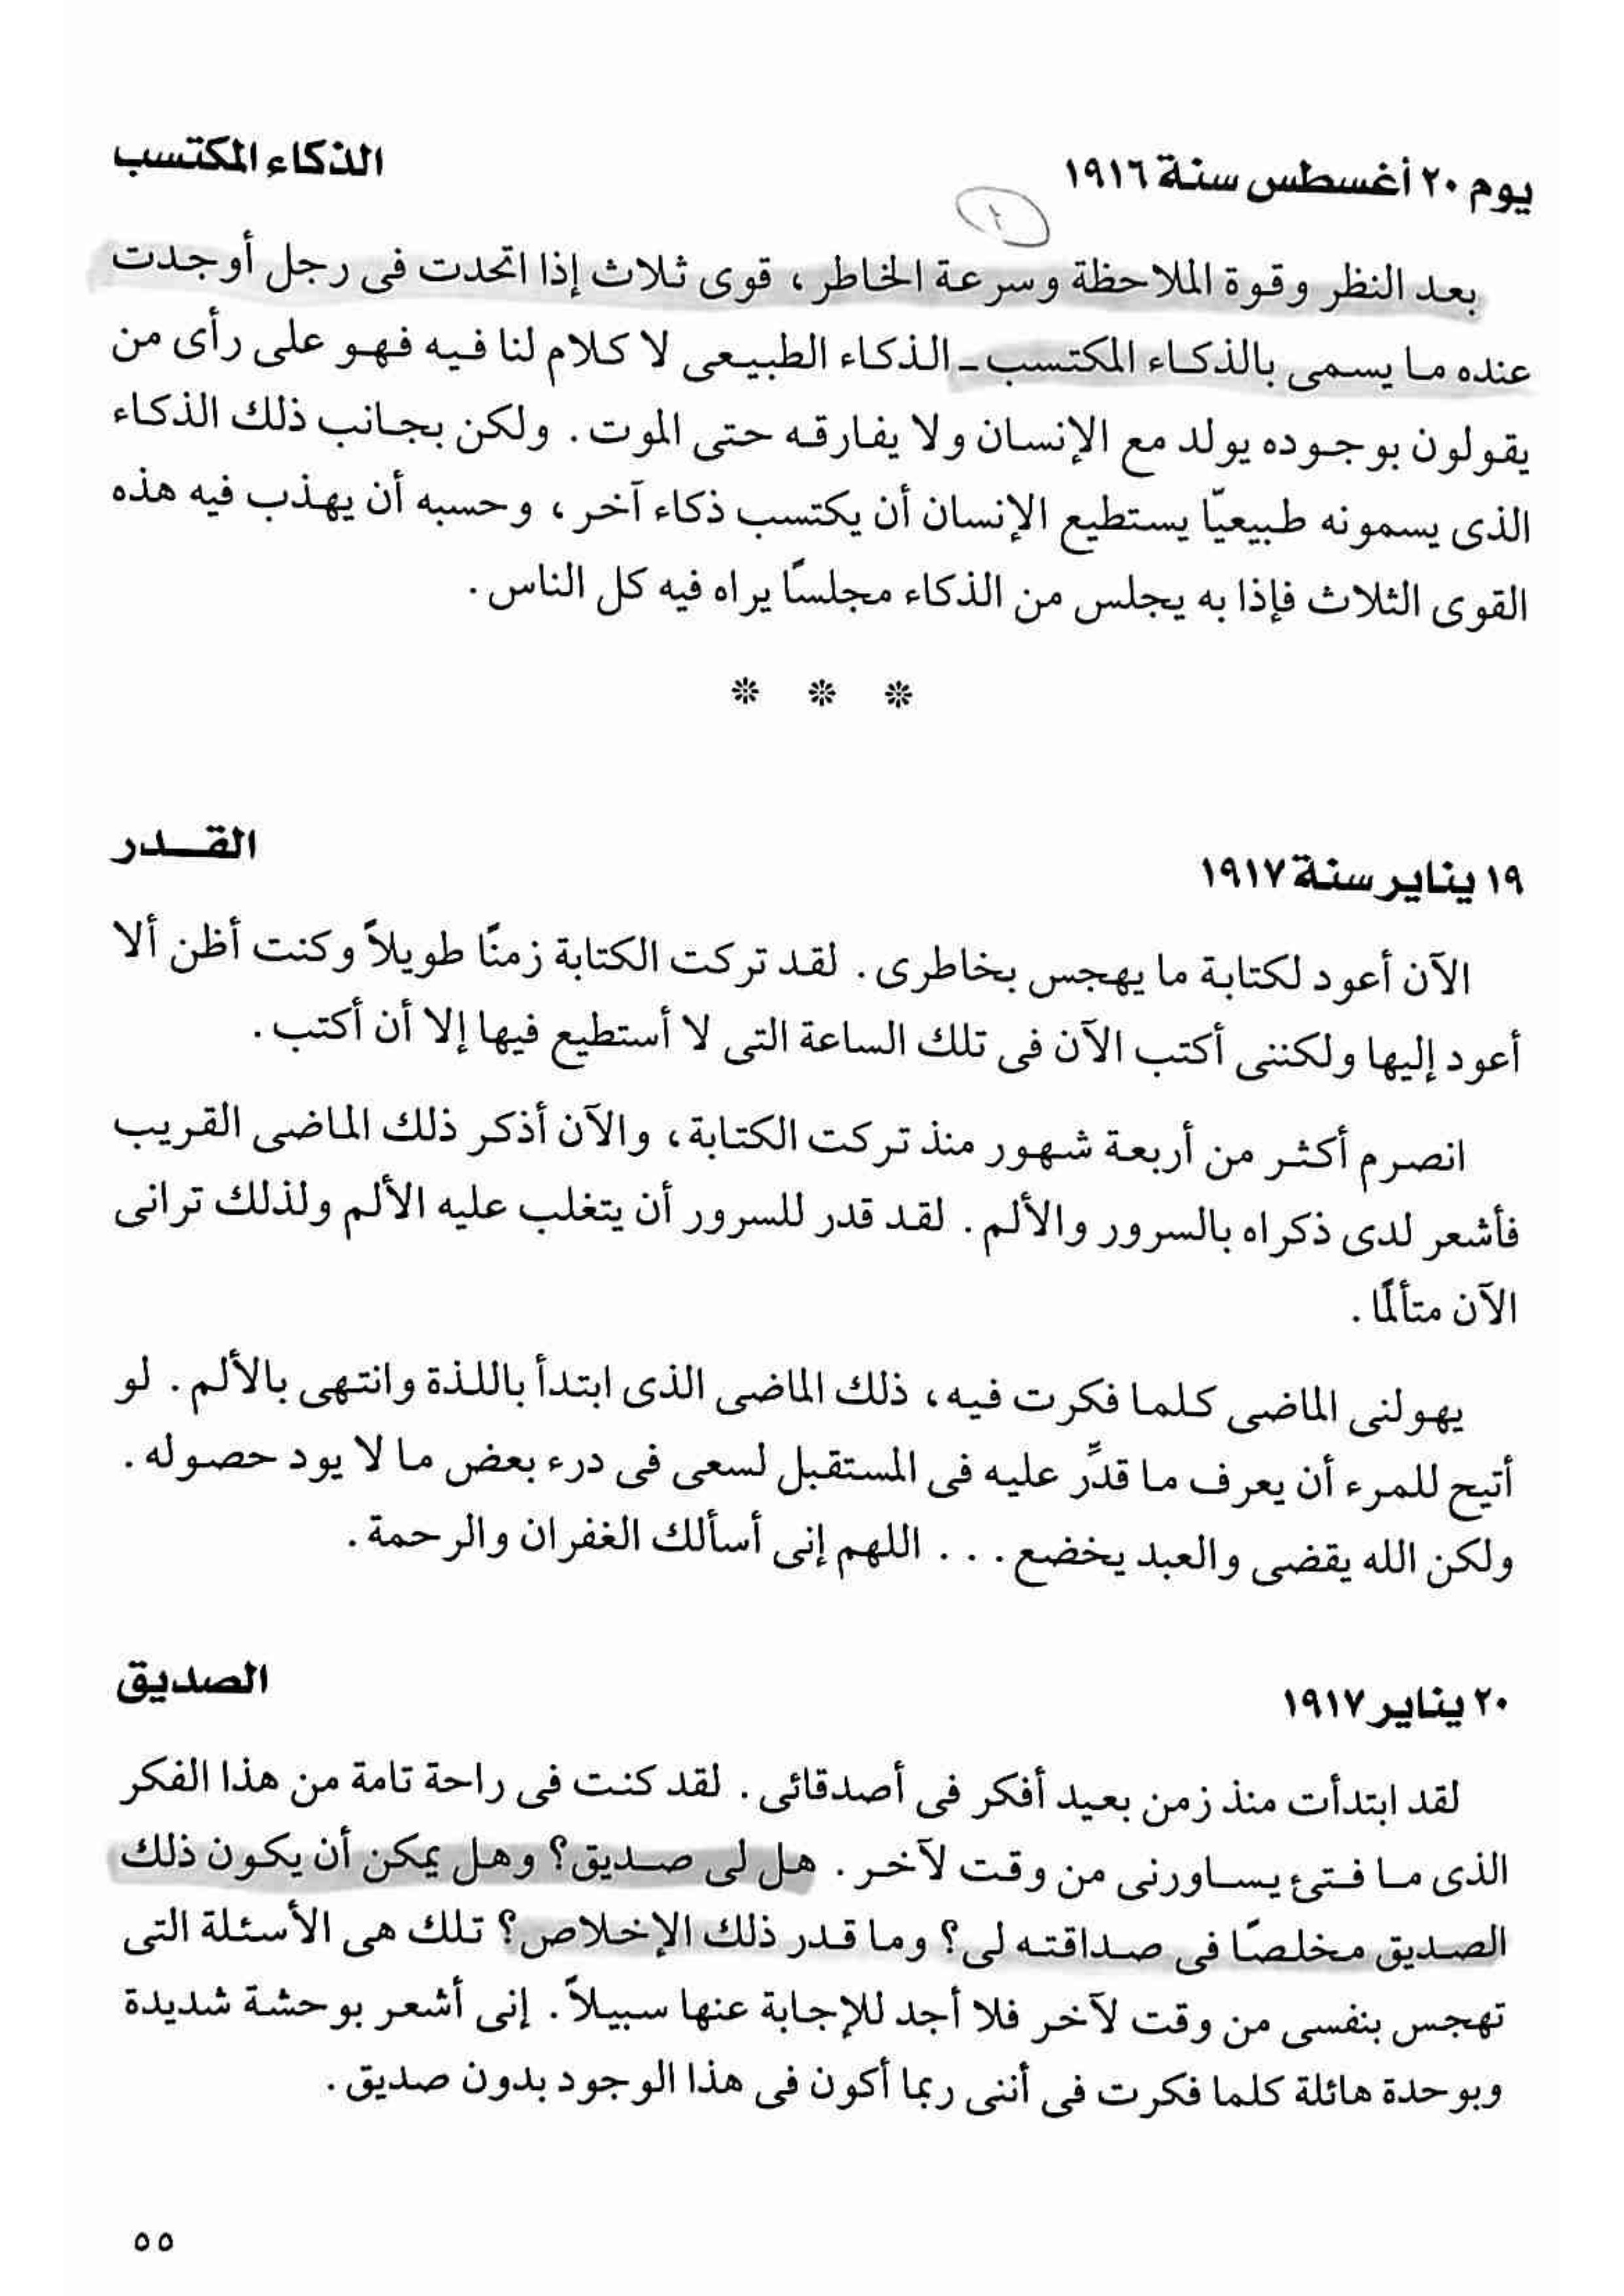 يوم ٢٠ أغسطس سنة ١٩١٦ الذكاء المكتسب
بعد النظر وقوة الملاحظة وسرعة الخاطر، قوى ثلاث إذا اتحدت فى رجل أوجدت
عنده ما يسمى بالذكاء المكتسب ـ الذكاء الطبيعى لا كلام لنا فيه فهو على رأى من
يقولون بوجوده يولد مع الإنسان ولا يفارقه حتى الموت. ولكن بجانب ذلك الذكاء
الذى يسمونه طبيعيّا يستطيع الإنسان أن يكتسب ذكاء آخر، وحسبه أن يهذب فيه هذه
القوى الثلاث فإذا به يجلس من الذكاء مجلسًا يراه فيه كل الناس.
* * *
١٩ يناير سنة ١٩١٧ القــدر
الآن أعود لكتابة ما يهجس بخاطرى. لقد تركت الكتابة زمنًا طويلاً وكنت أظن ألا
أعود إليها ولكننى أكتب الآن فى تلك الساعة التى لا أستطيع فيها إلا أن أكتب.
انصرم أكثر من أربعة شهور منذ تركت الكتابة، والآن أذكر ذلك الماضى القريب
فأشعر لدى ذكراه بالسرور والألم. لقد قدر للسرور أن يتغلب عليه الألم ولذلك ترانى
الآن متألمًا.
يهولنى الماضى كلما فكرت فيه، ذلك الماضى الذى ابتدأ باللذة وانتهى بالألم. لو
أتيح للمرء أن يعرف ما قدِّر عليه فى المستقبل لسعى فى درء بعض ما لا يود حصوله.
ولكن الله يقضى والعبد يخضع... اللهم إنى أسألك الغفران والرحمة.
٢٠ يناير ١٩١٧ الصديق
لقد ابتدأت منذ زمن بعيد أفكر فى أصدقائى. لقد كنت فى راحة تامة من هذا الفكر
الذى ما فتئ يساورنى من وقت لآخر. هل لى صديق؟ وهل يمكن أن يكون ذلك
الصديق مخلصًا فى صداقته لى؟ وما قدر ذلك الإخلاص؟ تلك هى الأسئلة التى
تهجس بنفسى من وقت لآخر فلا أجد للإجابة عنها سبيلاً. إنى أشعر بوحشة شديدة
وبوحدة هائلة كلما فكرت فى أننى ربما أكون فى هذا الوجود بدون صديق.
٥٥